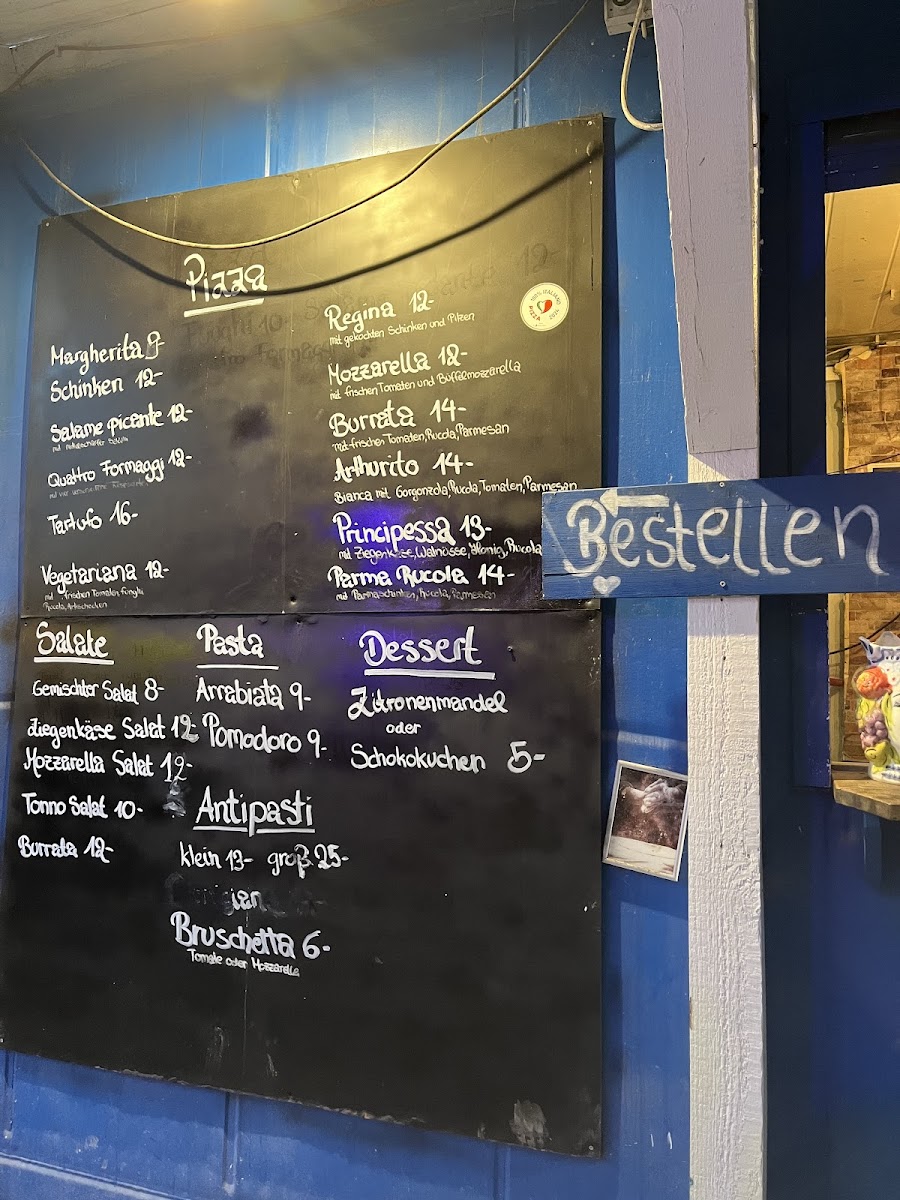 Pizza
Margherita 9-
Schinken 12-
Salame picante 12-
Quattro Formaggi 12-
Tartufo 16-
Vegetariana 12-
mit frischen Tomaten, funghi
Rucola, Artischocken
Regina 12-
mit gekochten Schinken und Pilzen
Mozzarella 12-
mit frischen Tomaten und Büffelmozzarella
Burrata 14-
mit frischen Tomaten, Rucola, Parmesan
Arthurito 14-
Bianca mit Gorgonzola, Rucola, Tomaten, Parmesan
Principessa 13-
mit Ziegenkäse, Walnüsse, Honig, Rucola
Parma Rucola 14-
mit Parmaschinken, Rucola, Parmesan
Bestellen
Salate
Gemischter Salat 8-
Ziegenkäse Salat 12
Mozzarella Salat 12-
Tonno Salat 10-
Burrata 12-
Pasta
Arrabiata 9-
Pomodoro 9-
Antipasti
klein 13- groß 25-
Bruschetta 6-
Tomate oder Mozzarella
Dessert
Zitronenmandel
oder
Schokokuchen 5-